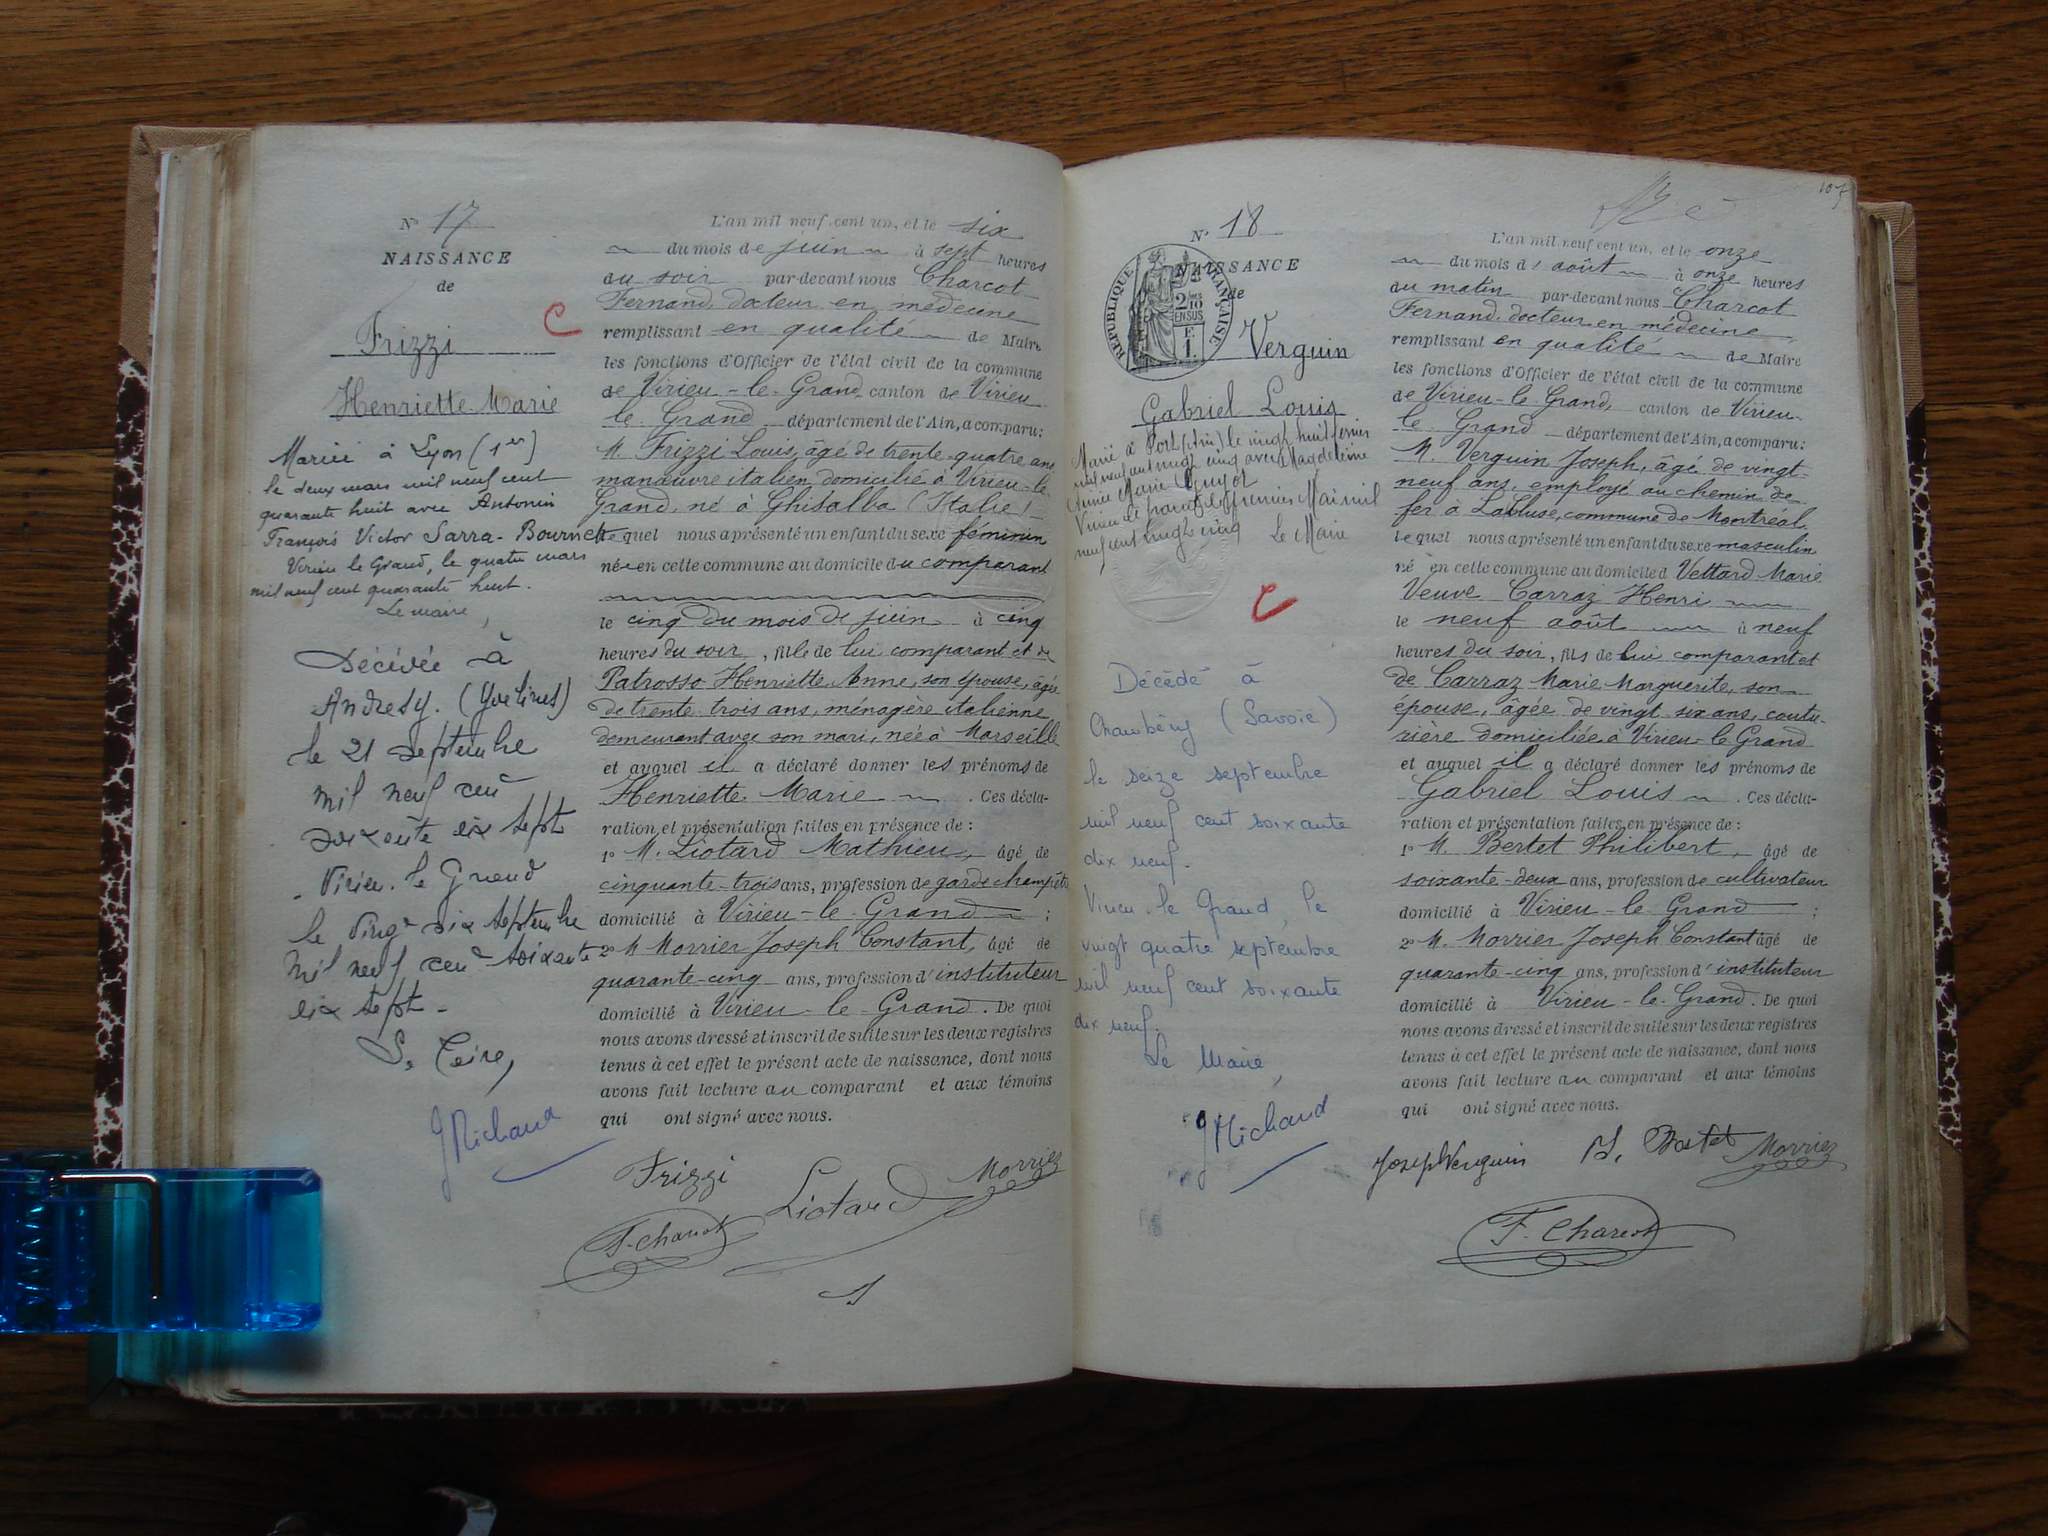 N° 17
NAISSANCE
de
Frizzi
Henriette Marie
Mariée à Lyon (1er)
le deux mars mil neuf cent
quarante huit avec Antonin
François Victor Sarra-Bournet
Virieu le Grand, le quatre mars
mil neuf cent quarante huit.
Le maire,
Décédée à
Andresy. (Yvelines)
le 21 septembre
mil neuf cent
soixante dix sept
Virieu le Grand
le vingt six septembre
mil neuf cent soixante
dix sept -
Michaud
L'an mil neuf cent un, et le six
du mois de juin à sept heures
du soir par-devant nous Charcot
Fernand, docteur en médecine
remplissant en qualité de Maire
les fonctions d'Officier de l'état civil de la commune
de Virieu-le-Grand, canton de Virieu-
le Grand département de l'Ain, a comparu:
M. Frizzi Louis, âgé de trente-quatre ans
manœuvre italien domicilié à Virieu-le-
Grand, né à Ghisalba (Italie)
lequel nous a présenté un enfant du sexe féminin
née en cette commune au domicile du comparant
le cinq du mois de juin à cinq
heures du soir, fille de lui comparant et de
Patrosso Henriette Anne, son épouse, âgée
de trente trois ans, ménagère italienne
demeurant avec son mari, née à Marseille
et auquel il a déclaré donner les prénoms de
Henriette Marie . Ces décla-
ration et présentation faites en présence de :
1° M. Liotard Mathieu, âgé de
cinquante-trois ans, profession de garde champêtre
domicilié à Virieu-le-Grand ;
2° M Morrier Joseph Constant, âgé de
quarante-cinq ans, profession d'instituteur
domicilié à Virieu-le-Grand. De quoi
nous avons dressé et inscrit de suite sur les deux registres
tenus à cet effet le présent acte de naissance, dont nous
avons fait lecture au comparant et aux témoins
qui ont signé avec nous.
Frizzi Liotard Morrier
F. Charcot
107
N° 18
NAISSANCE
de
RÉPUBLIQUE FRANÇAISE
2/10 EN SUS
Verguin
Gabriel Louis
Marié à (Ain) le vingt huit
mil neuf cent vingt cinq avec Magdeleine
Marie Guyot
Virieu le grand le premier Mai mil
neuf cent vingt cinq Le Maire
Décédé à
Chambéry (Savoie)
le seize septembre
mil neuf cent soixante
dix neuf.
Virieu le Grand, le
vingt quatre septembre
mil neuf cent soixante
dix neuf.
Le Maire,
Michaud
L'an mil neuf cent un, et le onze
du mois d'août à onze heures
du matin par-devant nous Charcot
Fernand, docteur en médecine
remplissant en qualité de Maire
les fonctions d'Officier de l'état civil de la commune
de Virieu-le-Grand, canton de Virieu-
le Grand département de l'Ain, a comparu:
M. Verguin Joseph, âgé de vingt-
neuf ans, employé au chemin de
fer à Lacluse, commune de Montréal,
lequel nous a présenté un enfant du sexe masculin
né en cette commune au domicile d Vettard Marie
Veuve Carraz Henri
le neuf août à neuf
heures du soir, fils de lui comparant et
de Carraz Marie Marguerite, son
épouse, âgée de vingt six ans, coutu-
rière domiciliée à Virieu-le Grand
et auquel il a déclaré donner les prénoms de
Gabriel Louis . Ces décla-
ration et présentation faites en présence de :
1° M. Bertet Philibert, âgé de
soixante-deux ans, profession de cultivateur
domicilié à Virieu-le-Grand ;
2° M. Morrier Joseph Constant âgé de
quarante-cinq ans, profession d'instituteur
domicilié à Virieu-le-Grand. De quoi
nous avons dressé et inscrit de suite sur les deux registres
tenus à cet effet le présent acte de naissance, dont nous
avons fait lecture au comparant et aux témoins
qui ont signé avec nous.
Joseph Verguin Bertet Morrier
F. Charcot